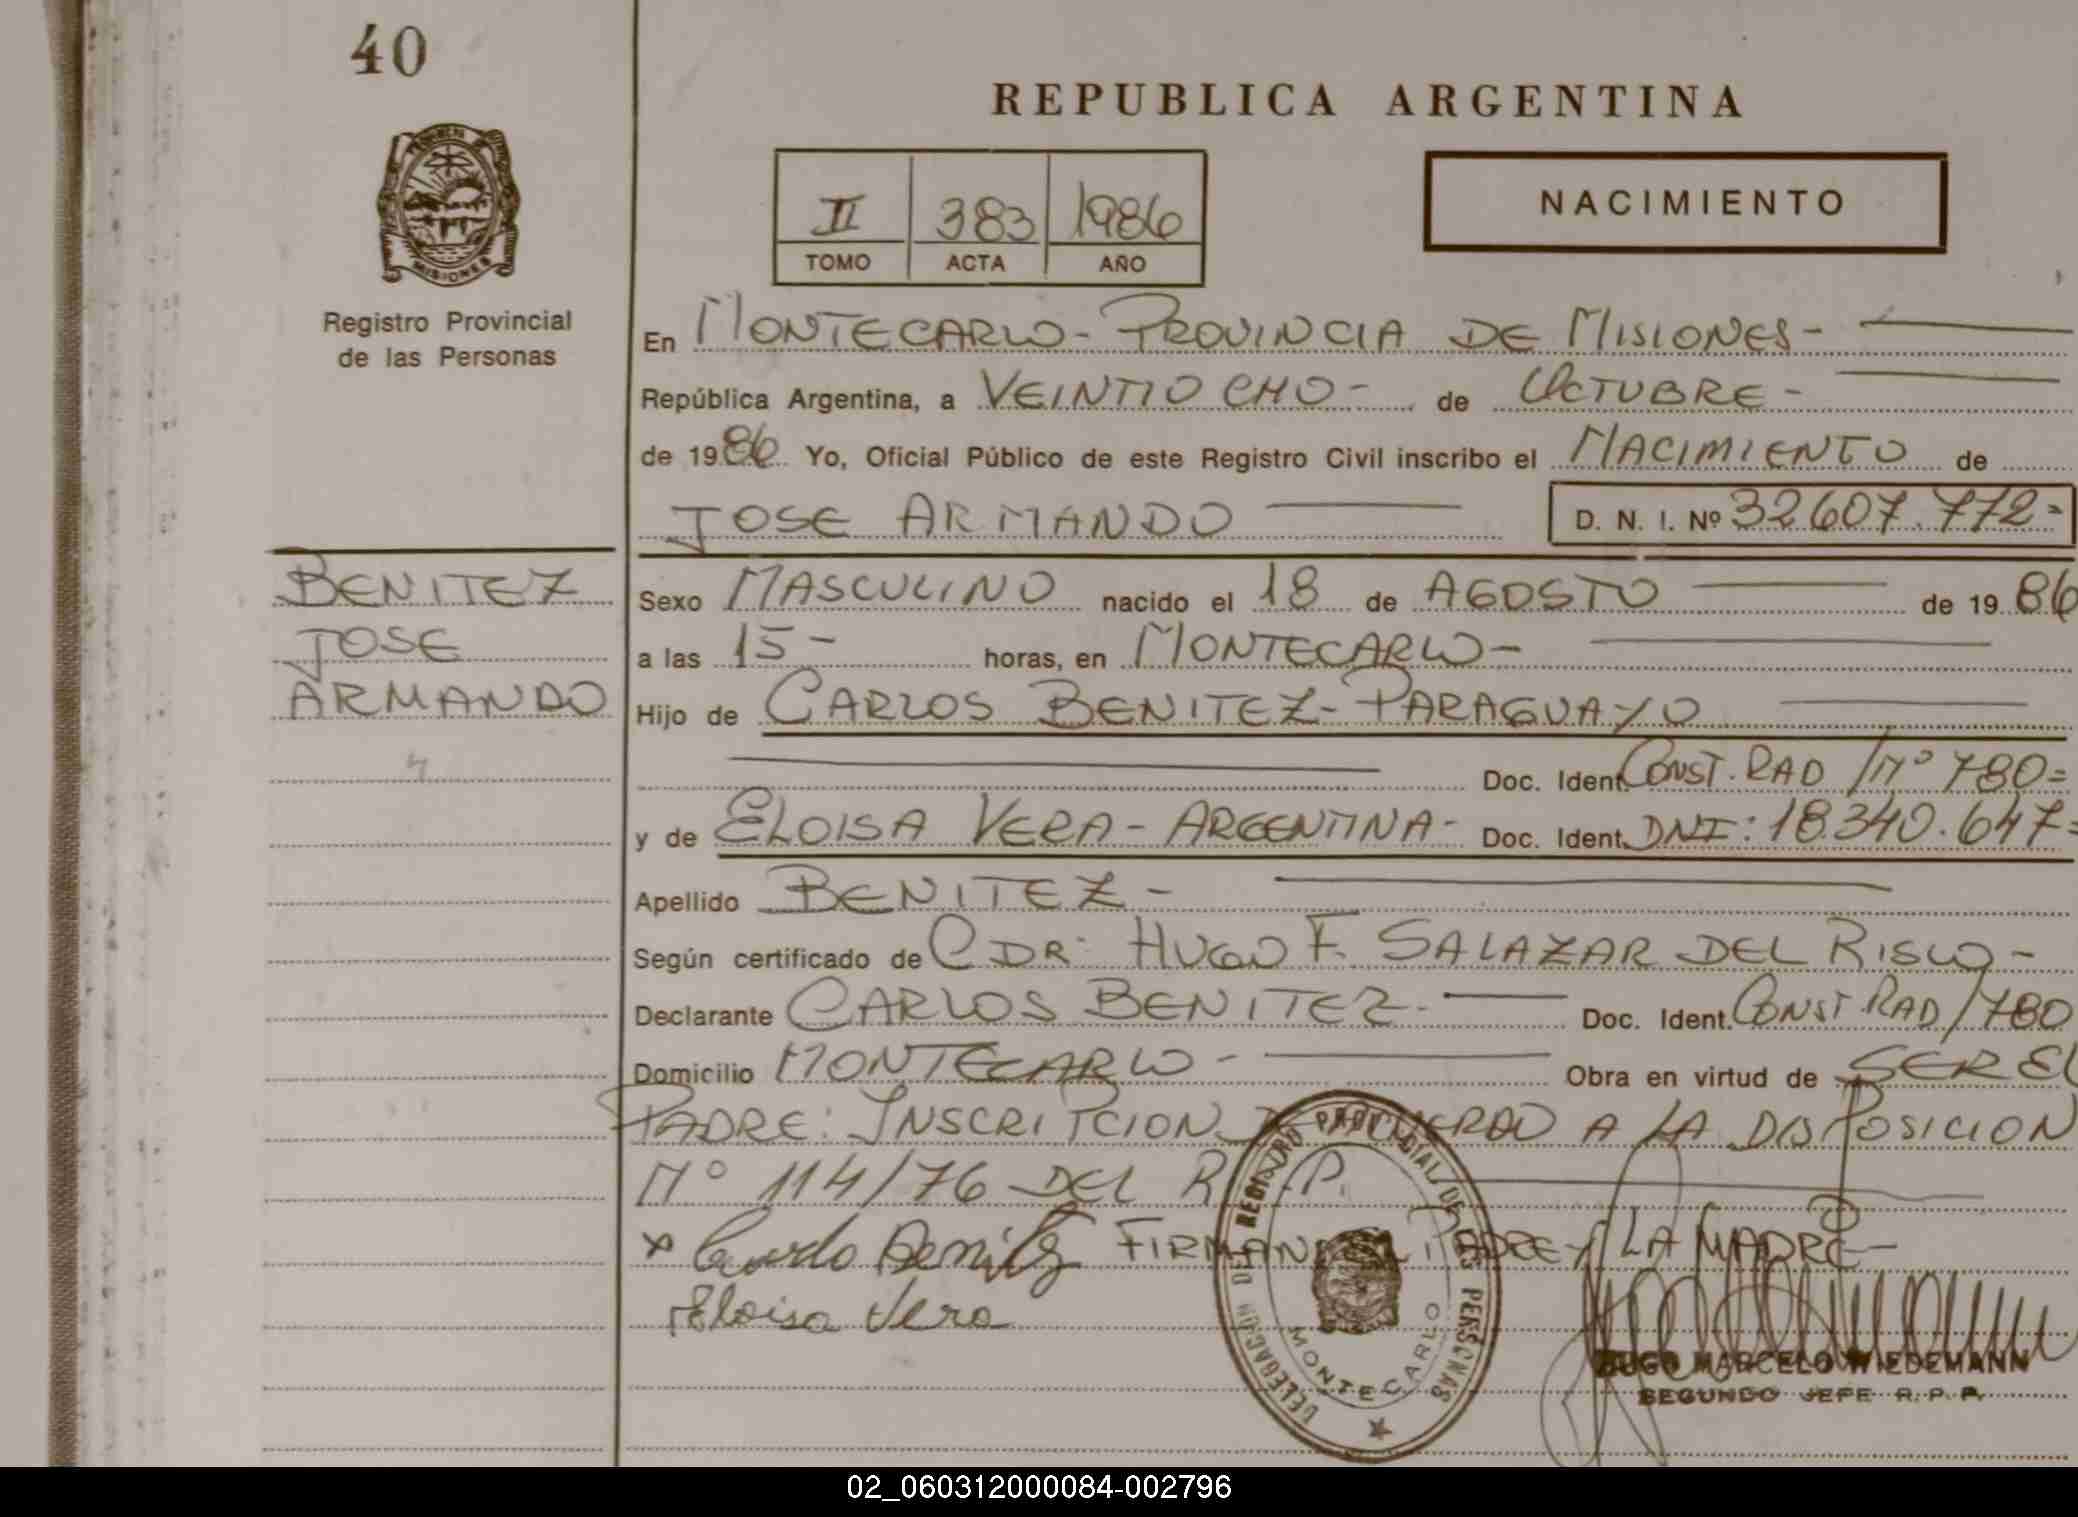 40
REPUBLICA ARGENTINA
PROVINCIA DE MISIONES
II 383 1986
TOMO ACTA AÑO
NACIMIENTO
Registro Provincial
de las Personas
En MONTECARLO - PROVINCIA DE MISIONES -
República Argentina, a VEINTIOCHO - de OCTUBRE -
de 1986 Yo, Oficial Público de este Registro Civil inscribo el NACIMIENTO de
JOSE ARMANDO D. N. I. Nº 32.607.772=
BENITEZ
JOSE
ARMANDO
Sexo MASCULINO nacido el 18 de AGOSTO de 1986
a las 15 - horas, en MONTECARLO -
Hijo de CARLOS BENITEZ - PARAGUAYO
Doc. Ident. CONST. RAD / Nº 780=
y de ELOISA VERA - ARGENTINA - Doc. Ident. DNI: 18.340.647=
Apellido BENITEZ -
Según certificado de CDR: HUGO F. SALAZAR DEL RISCO -
Declarante CARLOS BENITEZ - Doc. Ident. CONST RAD / 780
Domicilio MONTECARLO - Obra en virtud de SER EL
PADRE: INSCRIPCION DE ACUERDO A LA DISPOSICION
Nº 114/76 DEL R.P.P.
x Carlo Benitez FIRMAN EL PADRE Y LA MADRE -
Eloisa Vera
DELEGACION DEL REGISTRO PROVINCIAL DE LAS PERSONAS
MONTECARLO
HUGO MARCELO WIEDEMANN
SEGUNDO JEFE R. P. P.
02_060312000084-002796